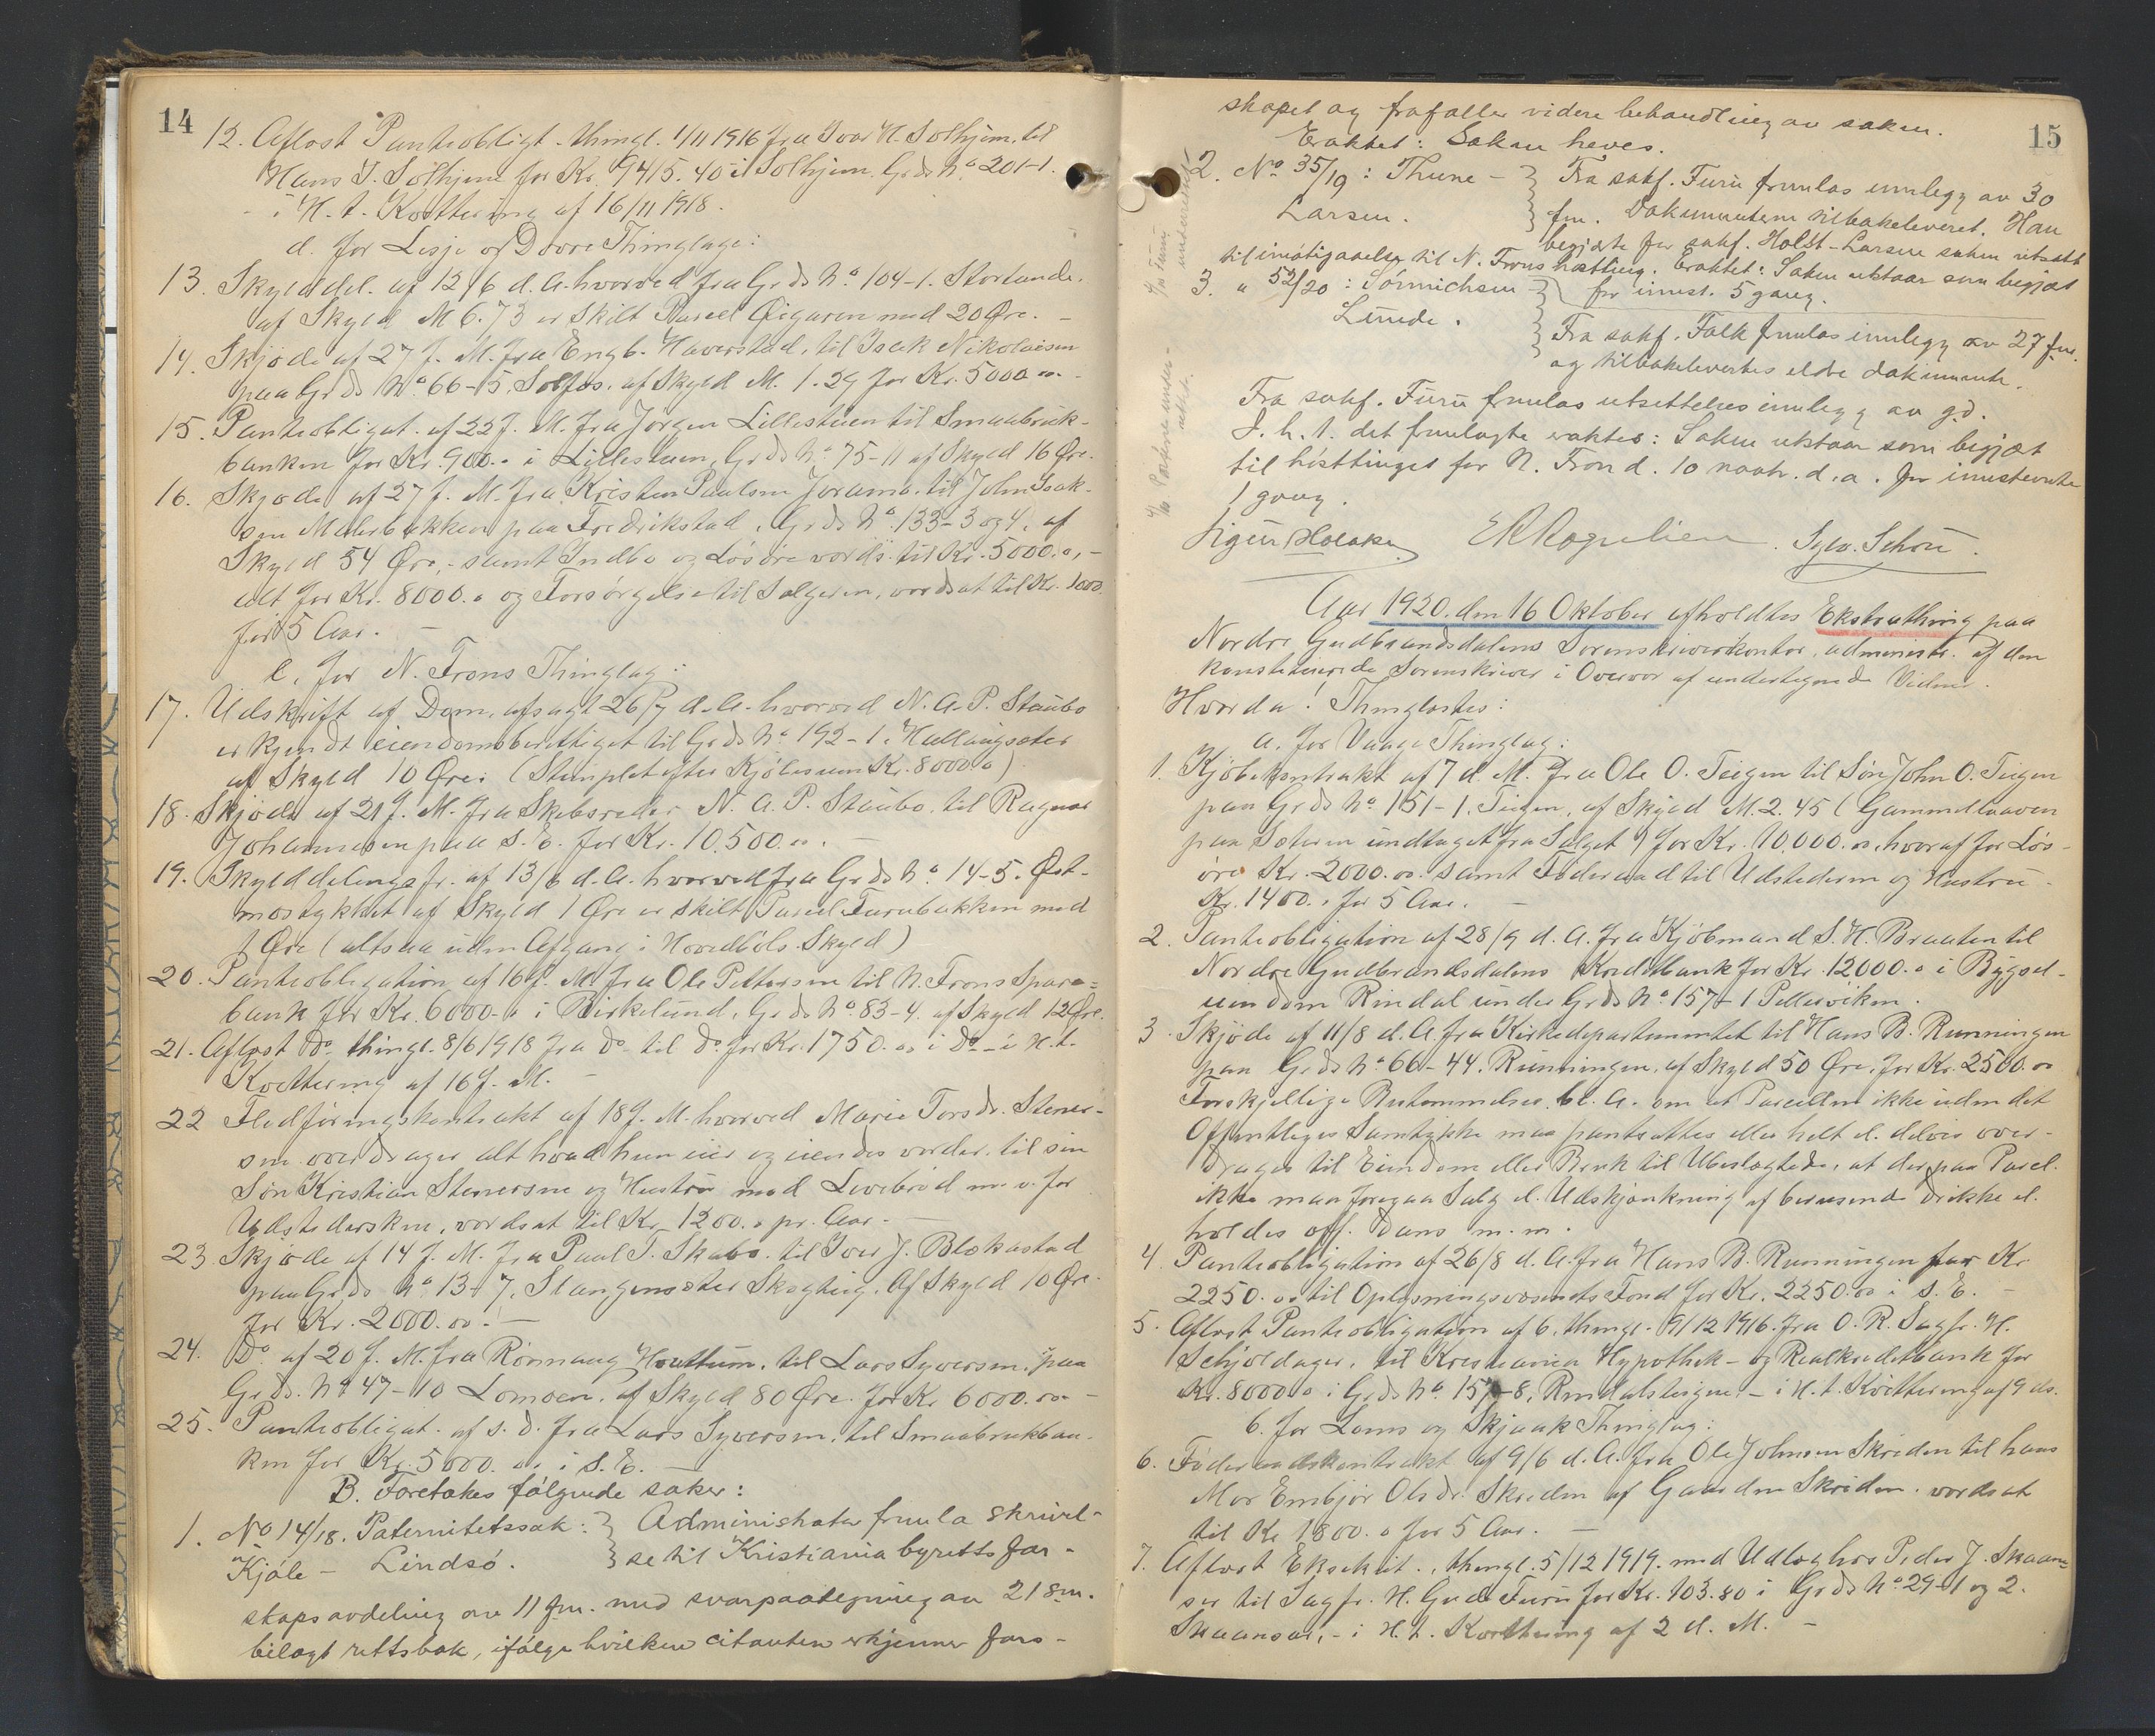 14
12. Aflæst Panteobligt. thingl. 1/11 1916 fra Ivar H. Solhjem til
Hans I. Solhjem for Kr. 9415.40 i Solhjem, G.ds No 201-1.
- i H. t. Kvittering af 16/11 1918.
d. for Lesje og Dovre Thinglag:
13. Skylddel. af 12/6 d. A. hvorved fra G. ds No 104-1. Storlunde.
af Skyld M 6.73 er skilt Parcel Øigaren med 20 Øre. -
14. Skjøde af 27 f. M. fra Engb. Haverstad, til Isak Nikolaisen
paa G. ds No 66-5, Solfos, af Skyld M. 1.29 for Kr. 5000.00 -
15. Panteobligat. af 22 f. M. fra Jørgen Lillestuen til Smaabruk-
banken for Kr. 900.00 i Lillestuen, G. ds No 75-11 af Skyld 16 Øre.
16. Skjøde af 27 f. M. fra Kristen Paulsen Joramo til John Isak-
sen Malerbakken paa Fredrikstad, G. ds No 133-3 og 4, af
Skyld 54 Øre, - samt Indbo og Løsøre værds. til Kr. 5000.00, -
alt for Kr. 8000.00 og Forsørgelse til Sælgeren, værdsat til Kr. 1000
for 5 Aar. -
e. for N. Frons Thinglag:
17. Udskrift af Dom, afsagt 26/7 d. A. hvorved N. A. P. Staubo
er kjendt eiendomsberettiget til G. ds No 192-1. Hattingsæter
af Skyld 10 Øre. (Stemplet efter Kjøbesum Kr. 8000.00)
18. Skjøde af 21 f. M. fra Skibsreder N. A. P. Staubo til Ragnar
Johannesen paa s. E. for Kr. 10.500.00. -
19. Skylddelingsfr. af 13/8 d. A. hvorved fra G. ds No 14-5. Øst-
mostykket af Skyld 1 Øre er skilt Parcel Furubakken med
1 Øre (altsaa uden Afgang i Hovedbøls Skyld)
20. Panteobligation af 16 f. M. fra Ole Pettersen til N. Frons Spare-
bank for Kr. 6000.00 i Birkelund, G. ds No 83-4. af Skyld 12 Øre.
21. Aflæst Do thingl. 8/6 1918 fra Do til Do for Kr. 1750.00 i Do - i H. t.
Kvittering af 16 f. M. -
22 Fledføringskontrakt af 18 f. M. hvorved Marie Torsdr. Stener-
sen overdrager alt hvad hun eier og eiendes vorder, til sin
Søn Kristian Stenersen og Hustru mod Levebrød m. v. for
Udstedersken, værdsat til Kr. 1200.00 pr. Aar. -
23. Skjøde af 14 f. M. fra Paul T. Skabo til Iver J. Blekastad
paa G. ds No 13-7, Slangensæter Skogteig. Af Skyld 10 Øre.
for Kr. 2000.00. -
24. Do af 20 f. M. fra Rønnaug Hvattum, til Lars Syversen, paa
G. ds. No 47-10 Lomoen, af Skyld 80 Øre. for Kr. 6000.00 -
25. Panteobligat. af s. D. fra Lars Syversen, til Smaabrukban-
ken for Kr. 5000.00 i s. E. -
B. Foretokes følgende saker:
1. No 14/18. Paternitetssak: } Administrator fremla skrivel-
Kjøle - Lindsø. } se til Kristiania byretts far-
skapsavdeling av 11 fm. med svarpaategning av 21 sm.
bilagt rettsbok, ifølge hvilken citanten erkjenner fars-
15
skapet og frafaller videre behandling av saken.
Eraktet: Saken heves.
2. No 35/19: Thune - } Fra sakf. Furu fremlas innlegg av 30
Larsen. } fm. Dokumentene tilbakeleveret. Han
begjærte for sakf. Holst-Larsen saken utsatt
til imøtigaaelse til N. Frons høstting. Eraktet: Saken utstaar som begjært
3. " 52/20: Sörnichsen - } for innst. 5 gang.
Lunde. } Fra sakf. Falk fremlas innlegg av 27 fm.
og tilbakelevertes eldre dokumenter.
Fra sakf. Furu fremlas utsettelsesinnlegg av gd.
I. h. t. det fremlagte eraktes: Saken utstaar som begjært
til høsttinget for N. Fron d. 10 novbr. d. a. for innstevnte
1 gang.
Sylv. Schou.
Aar 1920. den 16 Oktober afholdtes Ekstrathing paa
Nordre Gudbrandsdalens Sorenskriverkontor, administr. af den
konstituerede Sorenskriver i Overvær af undertegnede Vidner.
Hvorda! Thinglæstes:
a. for Vaage Thinglag:
1. Kjøbekontrakt af 7 d. M. fra Ole O. Teigen til Søn John O. Teigen
paa G. ds No 151-1. Teigen, af Skyld M. 2.45 (Gammellaaven
paa Sæteren undtaget fra Salget) for Kr. 10.000.00, hvoraf for Løs-
øre Kr. 2000.00. samt Føderaad til Udstederen og Hustru -
Kr. 1400.00 for 5 Aar. -
2. Panteobligation af 28/9 d. A. fra Kjøbmand S. H. Braaten til
Nordre Gudbrandsdalens Kreditbank for Kr. 12000.00 i Bygsel-
eiendom Rindal under G. ds No 157-1 Pellesviken.
3. Skjøde af 11/8 d. A. fra Kirkedepartementet til Hans B. Runningen
paa G. ds No 66-44. Runningen, af Skyld 50 Øre, for Kr. 2500.00
Forskjellige Bestemmelser, bl. A. om at Parcellen ikke uden det
Offentliges Samtykke maa pantsættes eller helt el. delvis over-
drages til Eiendom eller Bruk til Ubeslægtede, at der paa Parcel.
ikke maa foregaa Salg el. Udskjænkning af berusende Drikke el.
holdes off. Dans m. m.
4. Panteobligation af 26/8 d. A. fra Hans B. Runningen for Kr.
2250.00 til Oplysningsvæsenets Fond for Kr. 2250.00 i s. E. -
5. Aflæst Panteobligation af 6. thingl. 9/12 1916. fra O. R. Sagfr. H.
Schjoldager, til Kristiania Hypothek- og Realkreditbank for
Kr. 8000.00 i G. ds No 157-8, Rindalsteigen - i H. t. Kvittering af 9 ds.
b. for Loms og Skjaak Thinglag:
6. Føderaadskontrakt af 9/6 d. A. fra Ole Johnsen Skriden til hans
Mor Embjør Olsdr. Skriden af Gaarden Skriden, værdsat
til Kr. 1800.00 for 5 Aar. -
7. Aflæst Eksekut., thingl. 5/12 1919. med Udlæg hos Peder J. Skaan-
sar til Sagfr. H. Gude Furu for Kr. 103.80 i G. ds No 29-1 og 2.
Skaansar, - i H. t. Kvittering af 2 d. M. -